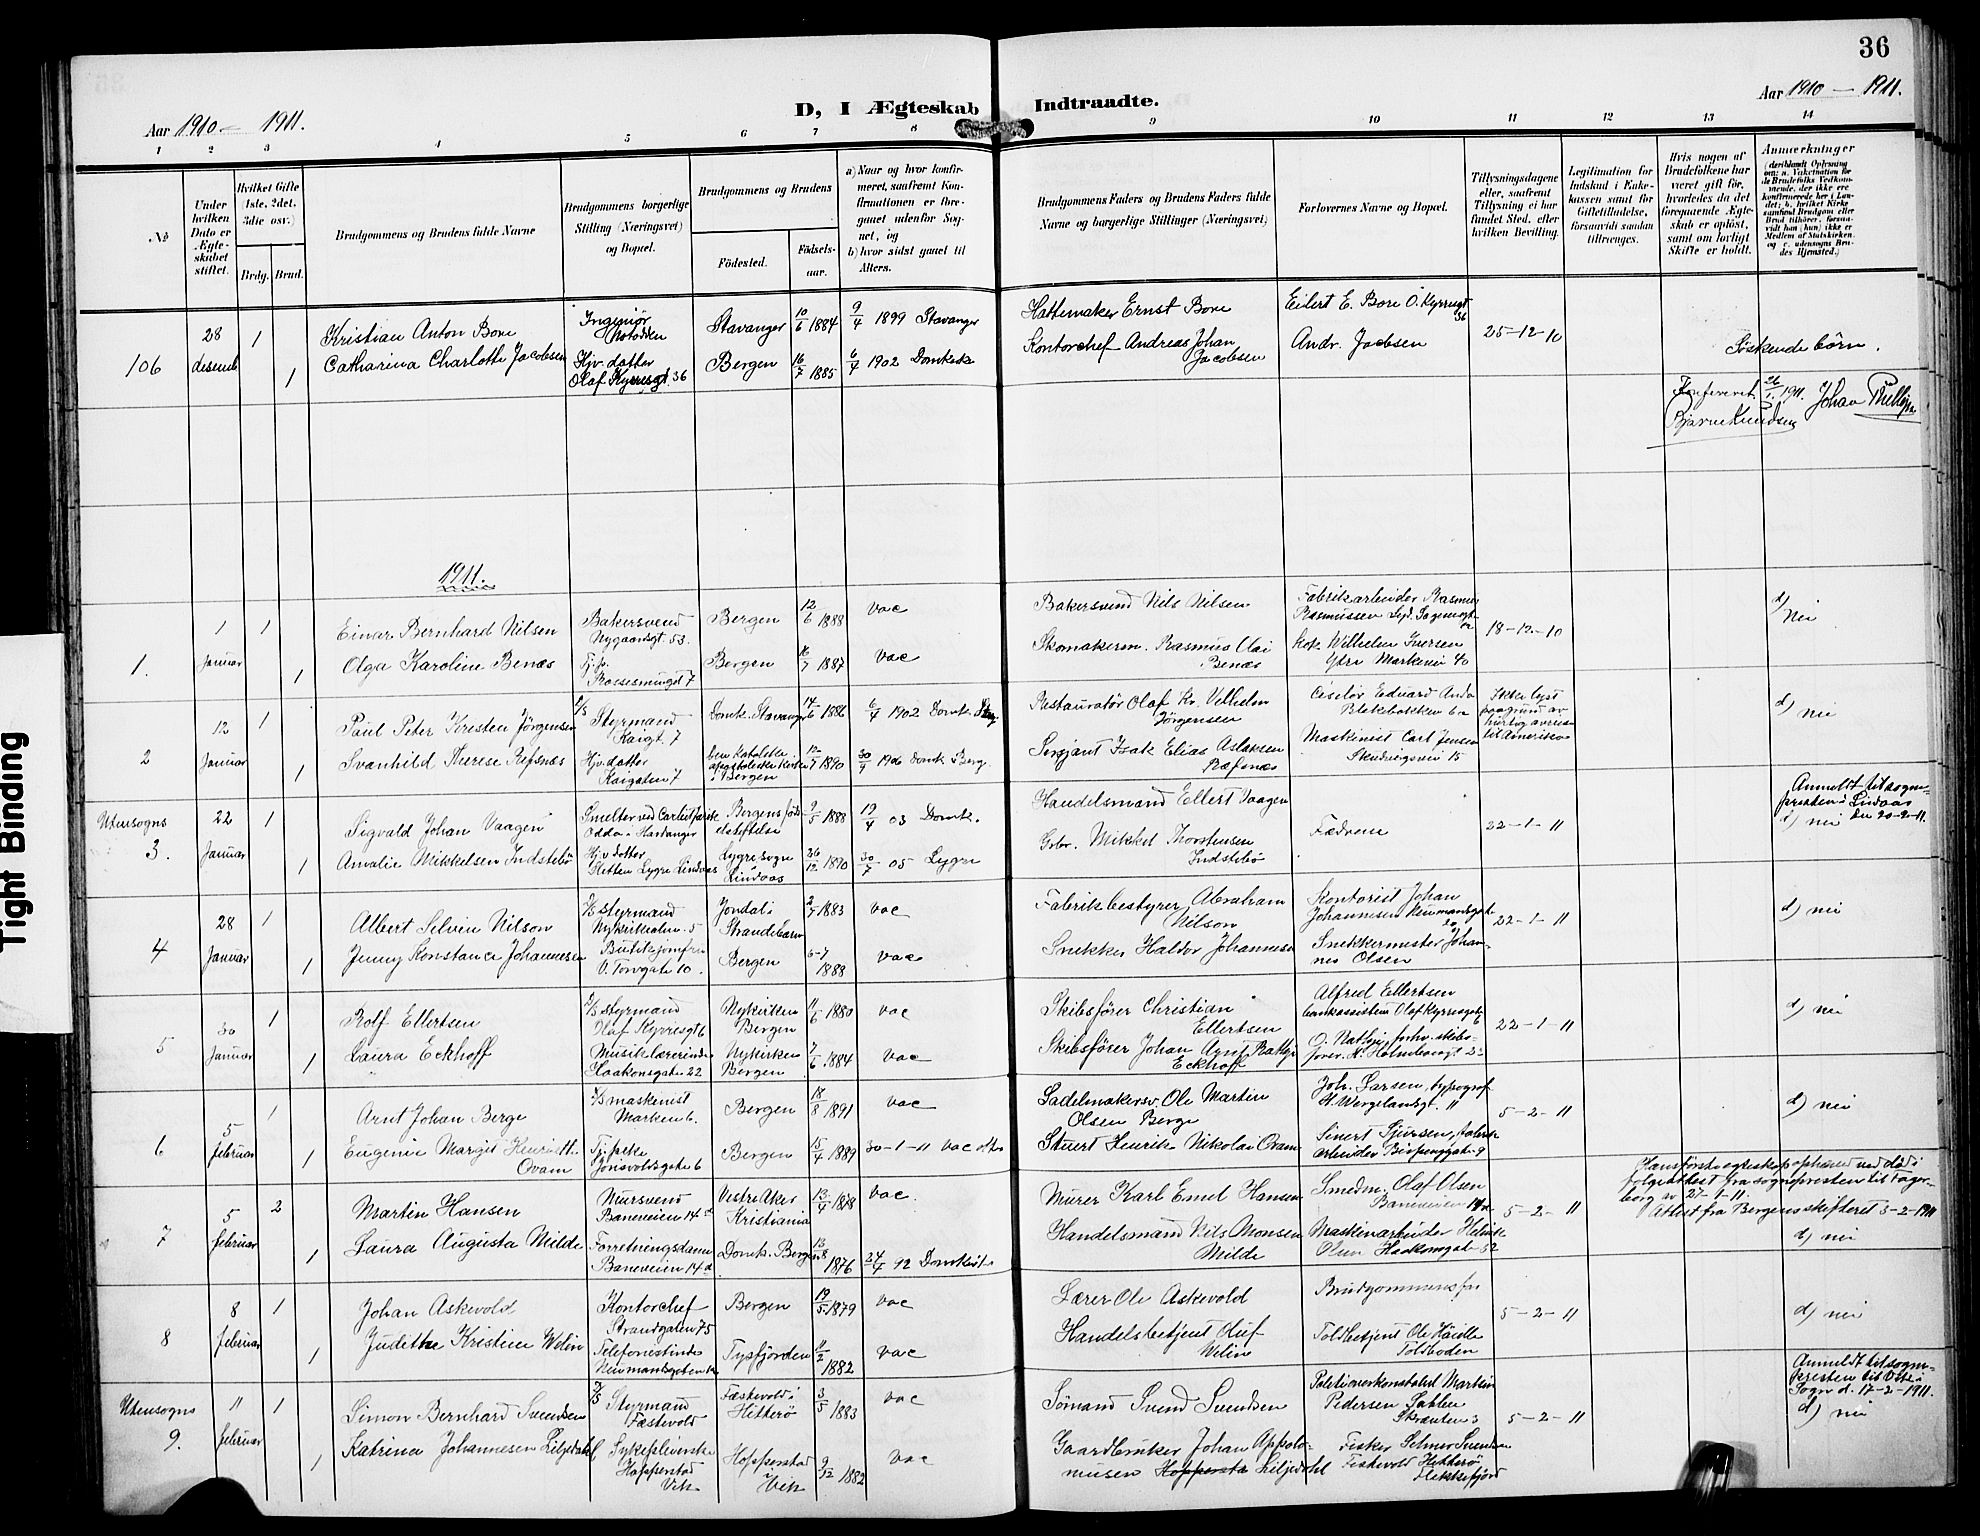 36
Aar 1910 – 1911.
D, I Ægteskab Indtraadte.
Aar 1910 – 1911.
1 2 3 4 5 6 7 8 9 10 11 12 13 14
№
Under hvilken Dato er Ægteskabet stiftet.
Hvilket Gifte (1ste, 2det, 3die osv.)
Brdg. Brud.
Brudgommens og Brudens fulde Navne
Brudgommens borgerlige Stilling (Næringsvei) og Bopæl.
Brudgommens og Brudens
Födested.
Födsels-aar.
a) Naar og hvor konfirmeret, saafremt Konfirmationen er foregaaet udenfor Sognet, og
b) hvor sidst gaaet til Alters.
Brudgommens Faders og Brudens Faders fulde Navne og borgerlige Stillinger (Næringsvei)
Forlovernes Navne og Bopæl.
Tillysningsdagene eller, saafremt Tillysning ei har fundet Sted, efter hvilken Bevilling.
Legitimation for Indskud i Enkekassen samt for Giftetilladelse, forsaavidt saadan tiltrænges.
Hvis nogen af Brudefolkene har været gift för, hvorledes da det foregaaende Ægteskab er oplöst, samt om lovligt Skifte er holdt.
Anmærkninger
106 28 desemb 1 Kristian Anton Bore Ingeniør Notodden Stavanger 10/6 1884 9/4 1899 Stavanger Hattemaker Ernst Bore Eilert E. Bore O. Kyrresgt 36 25-12-10
1 Catharina Charlotte Jacobsen Hjv. datter Olaf Kyrresgt. 36 Bergen 16/7 1885 6/4 1902 Domkirk Kontorchef Andreas Johan Jacobsen Andr. Jacobsen Søskendebørn.
Konfereret 26/1 1911. Johan
Bjarne Knudsen
1911.
1. 1 Januar 1 Einar Bernhard Nilsen Bakersvend Nygaardsgt. 53. Bergen 12/6 1888 vac Bakersvend Nils Nilsen Fabrikarbeider Rasmus Rasmussen 18-12-10 d) nei
1 Olga Karoline Benæs Bergen 16/7 1887 vac Skomakerm. Rasmus Olai Benæs Wilhelm Iversen Ytre Markevei 40
2 12 Januar 1 Paul Peter Kirsten Jörgensen Styrmand Kaigt. 7 Domk. Stavanger 14/6 1886 6/4 1902 Domk. Restauratör Olaf Kr. Vilhelm Jörgensen Ciselör Edvard Blekebakken Ikke lyst paagrund av hurtig avreise til Amerika d) nei
1 Svanhild Therese Refsnæs Hjv. datter Kaigaten 7 Bergen 1890 30/9 1906 Domk. Berg. Sersjant Isak Elias Aslaksen Ræfsnæs Maskinist Carl Jensen 15
Utensogns 3. 22 Januar 1 Sigvald Johan Vaagen Smelter ved Odda i Hardanger Bergens födselstiftelse 9/5 1888 19/4 03 Domk. Handelsmand Ellert Vaagen Fædrene 22-1-11 Anmeldt til sognepresten i Lindaas den 20-2-11. d) nei
1 Amalie Mikkelsen Indstebö Hjv datter Lygre Lindaas Lygre sogn Lindaas 26/12 1890 30/7 05 Lygre Grbr. Mikkel Thorstensen Indstebö
4 28 Januar 1 Albert Selvin Nilson Styrmand Nykirkealm. 5 Jondal i Strandebarm 2/7 1883 vac Fabrikbestyrer Abraham Nilson Kontorist Johan Johannesen Neumansgate 20 22-1-11 d) nei
1 Jenny Konstance Johannesen Butikjomfru O. Torvgate 10. Bergen 6-7 1888 vac Snekker Haldor Johannesen Snekkermester Johannes Olsen
5 30 Januar 1 Rolf Ellertsen Styrmand Olaf Kyrresgt 6 Nykirken Bergen 11/6 1880 vac Skibsförer Christian Ellertsen Alfred Ellertsen Olaf Kyrresgate 6 22-1-11 d) nei
1 Laura Eckhoff Musiklærerinde Haakonsgate 22 Nykirken Bergen 7/6 1884 vac Skibsförer Johan Eckhoff
6 5 februar 1 Arnt Johan Berge maskinist Marken 6. Bergen 18/8 1891 vac Sadelmakersv. Ole Martin Olsen Berge Joh. Larsen, typograf H. Wergelandsgt. 11 5-2-11 d) nei
1 Eugenie Margit Henriette Ovam Tj. pike 6 Bergen 15/4 1889 30-1-11 vac Stuert Henrik Nikolai Ovam Sivert Sjursen, fabrikarbeider 9
7 5 februar 2 Martin Hansen Mursvend Baneveien 14 Vestre Aker Kristiania 13/4 1878 vac. Murer Karl Emil Hansen Smedm. Olaf Olsen Baneveien 5-2-11 Hans første egteskap ophævet ved død i følge attest fra sognepresten til Fagerborg av 27-1-11. Attest fra Bergens skifteret 3-2-1911 d) nei
1 Laura Augusta Milde Forretningsdame Baneveien 14 Domk. Bergen 13/8 1876 24/4 92 Domkirk. Handelsmand Nils Monsen Milde Maskinarbeider Olsen Haakonsgate 52
8 8 februar 1 Johan Askevold Kontorchef Strandgaten 75 Bergen 19/5 1879 vac Lærer Ole Askevold Brudgommens far 5-2-11 d) nei
1 Judithe Kristine Welin Telefonistinde Neumansgaten Tysfjorden 11/2 1882 vac Handelsbetjent Oluf Welin Toldbetjent Ole Toldboden
Utensogns 9. 11 februar 1 Simon Bernhard Svendsen Styrmand Fæstevold Fæskevold i Hitterö 3/5 1883 vac Sömand Svend Svendsen Politioverkonstabel Martin Pedersen Skranten 3 5-2-11 Anmeldt til sognepresten til Vik i Sogn d. 17-2-1911. d) nei
1 Katrina Johannesen Liljedahl Sykepleierske Hopperstad Vik Hopperstad Vik 9/12 1882 vac Gaardbruker Johan Appolomusen Liljedahl Fisker Selmer Svendsen Fiskevold Hitterö Flekkefjord
Tight Binding